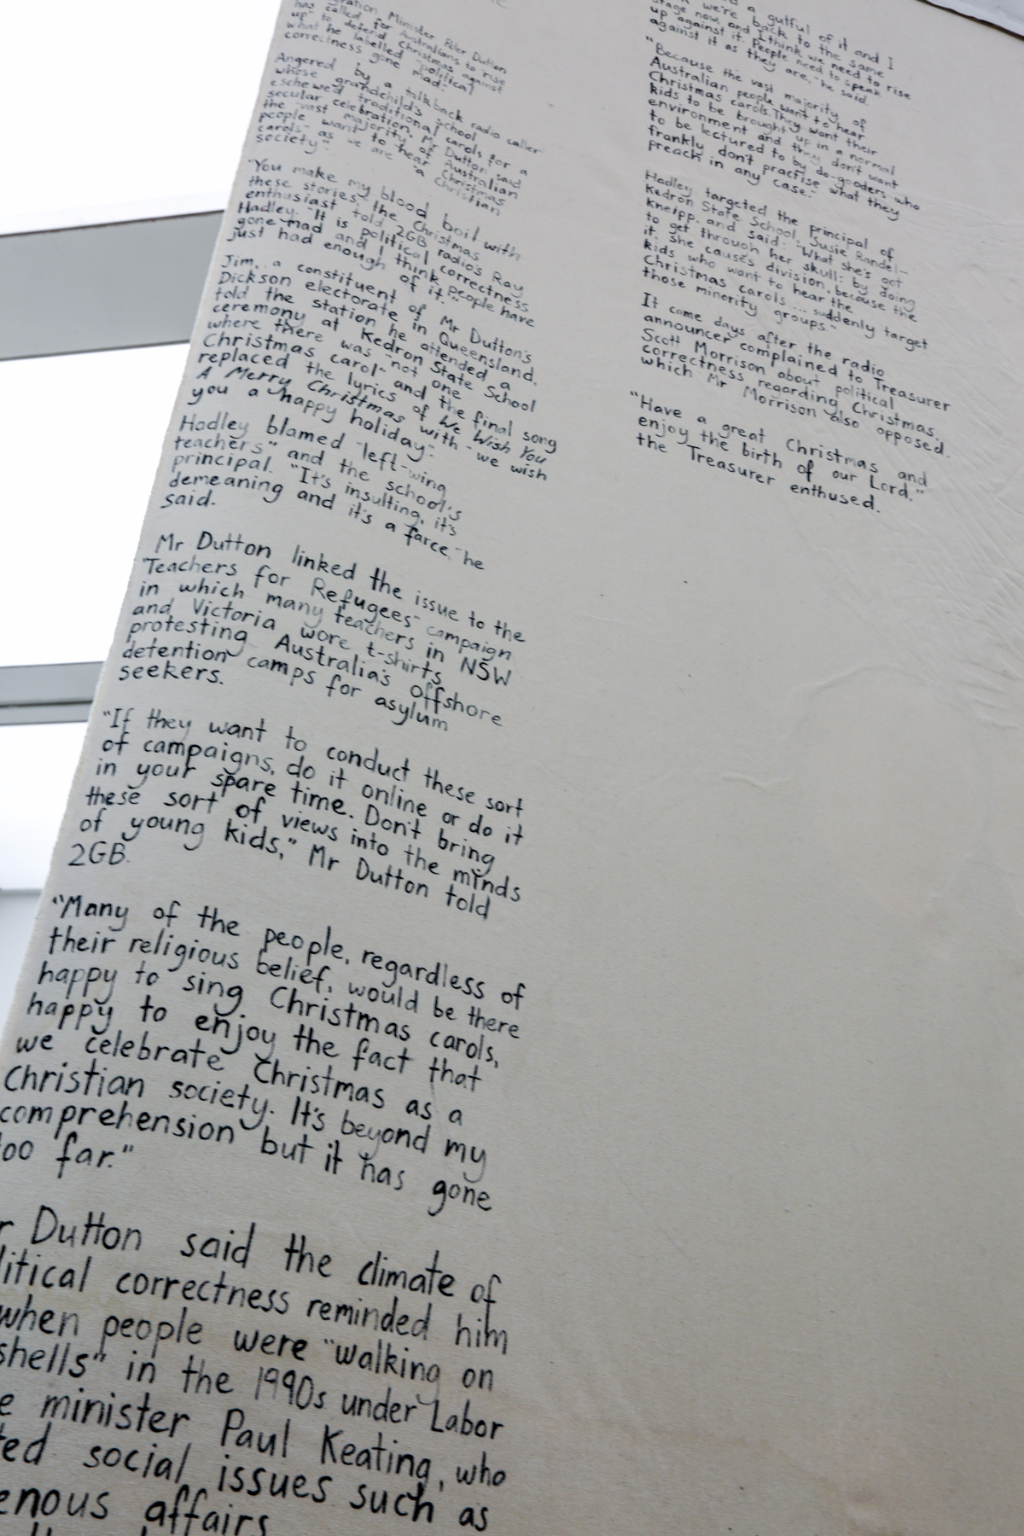 ration Minister Peter Dutton
has called for Australians to rise
up to defend Christmas against
what he labelled "political
correctness gone mad."
Angered by a talkback radio caller
whose grandchild's school
eschewed traditional carols for a
secular celebration, Mr Dutton said
the "vast majority of Australian
people want to hear Christmas
carols" as "we are a Christian
society".
"You make my blood boil with
these stories," the Christmas
enthusiast told 2GB radio's Ray
Hadley. "It is political correctness
gone mad and I think people have
just had enough of it."
Jim, a constituent of Mr Dutton's
Dickson electorate in Queensland,
told the station he attended a
ceremony at Kedron State School
where there was "not one
Christmas carol" and the final song
replaced the lyrics of We Wish You
A Merry Christmas with "we wish
you a happy holiday".
Hadley blamed "left-wing
teachers" and the school's
principal. "It's insulting, it's
demeaning and it's a farce," he
said.
Mr Dutton linked the issue to the
"Teachers for Refugees" campaign
in which many teachers in NSW
and Victoria wore t-shirts
protesting Australia's offshore
detention camps for asylum
seekers.
"If they want to conduct these sort
of campaigns, do it online or do it
in your spare time. Don't bring
these sort of views into the minds
of young kids," Mr Dutton told
2GB.
"Many of the people, regardless of
their religious belief, would be there
happy to sing Christmas carols,
happy to enjoy the fact that
we celebrate Christmas as a
Christian society. It's beyond my
comprehension but it has gone
too far."
r Dutton said the climate of
litical correctness reminded him
when people were "walking on
shells" in the 1990s under Labor
e minister Paul Keating, who
ted social issues such as
enous affairs
a gutful of it and I
we're back to the same
stage now, and I think we need to rise
up against it. People need to speak
against it as they are," he said.
"Because the vast majority of
Australian people want to hear
Christmas carols. They want their
kids to be brought up in a normal
environment and they don't want
to be lectured to by do-gooders who
frankly don't practise what they
preach in any case."
Hadley targeted the principal of
Kedron State School, Susie Randel-
Kneipp, and said: "What she's got
to get through her skull: by doing
it, she causes division, because the
kids who want to hear the
Christmas carols... suddenly target
those minority groups."
It came days after the radio
announcer complained to Treasurer
Scott Morrison about political
correctness regarding Christmas,
which Mr Morrison also opposed.
"Have a great Christmas and
enjoy the birth of our Lord,"
the Treasurer enthused.